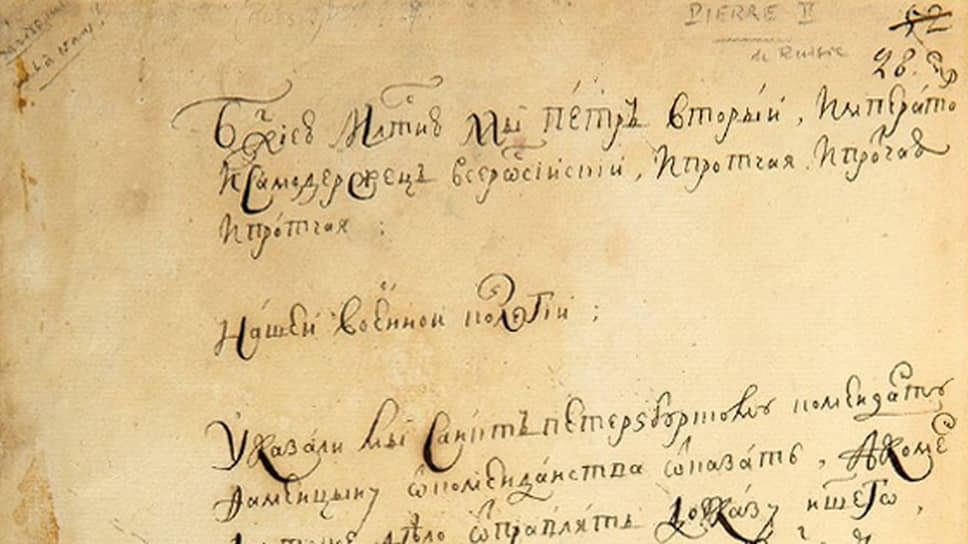 PIERRE II
de Russie
52
28.
Бж҃іею Млⷭ҇тию Мы Пе́тръ Вторыи, Императо
И Самодержецъ всероⷭ҇сіискіи, И протчая И прочая
И про́тчая :
На́шеи Вое́ннои коле́гіи ;
Указа́ли мы Санктъ пе́терзбургскому коменда́ту
ѿ комендантства ѿказа́ть ,
дѣло ѿправлять до ука́зу нашего ,